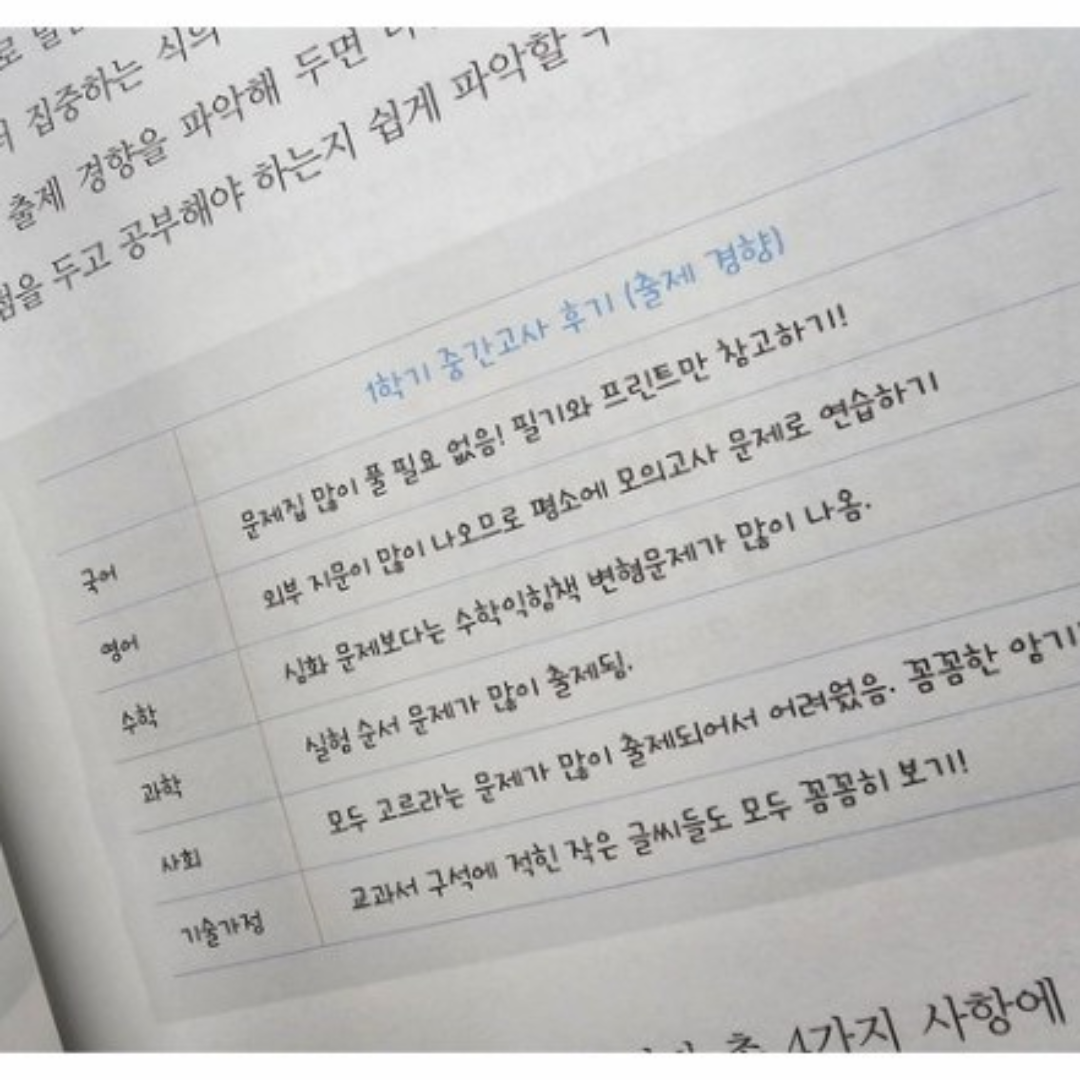 집중하는 식의
출제 경향을 파악해 두면
두고 공부해야 하는지 쉽게 파악할
1학기 중간고사 후기 (출제 경향)
국어 문제집 많이 풀 필요 없음! 필기와 프린트만 참고하기!
영어 외부 지문이 많이 나오므로 평소에 모의고사 문제로 연습하기
수학 심화 문제보다는 수학익힘책 변형문제가 많이 나옴.
과학 실험 순서 문제가 많이 출제됨.
사회 모두 고르라는 문제가 많이 출제되어서 어려웠음. 꼼꼼한 암기
기술가정 교과서 구석에 적힌 작은 글씨들도 모두 꼼꼼히 보기!
4가지 사항에